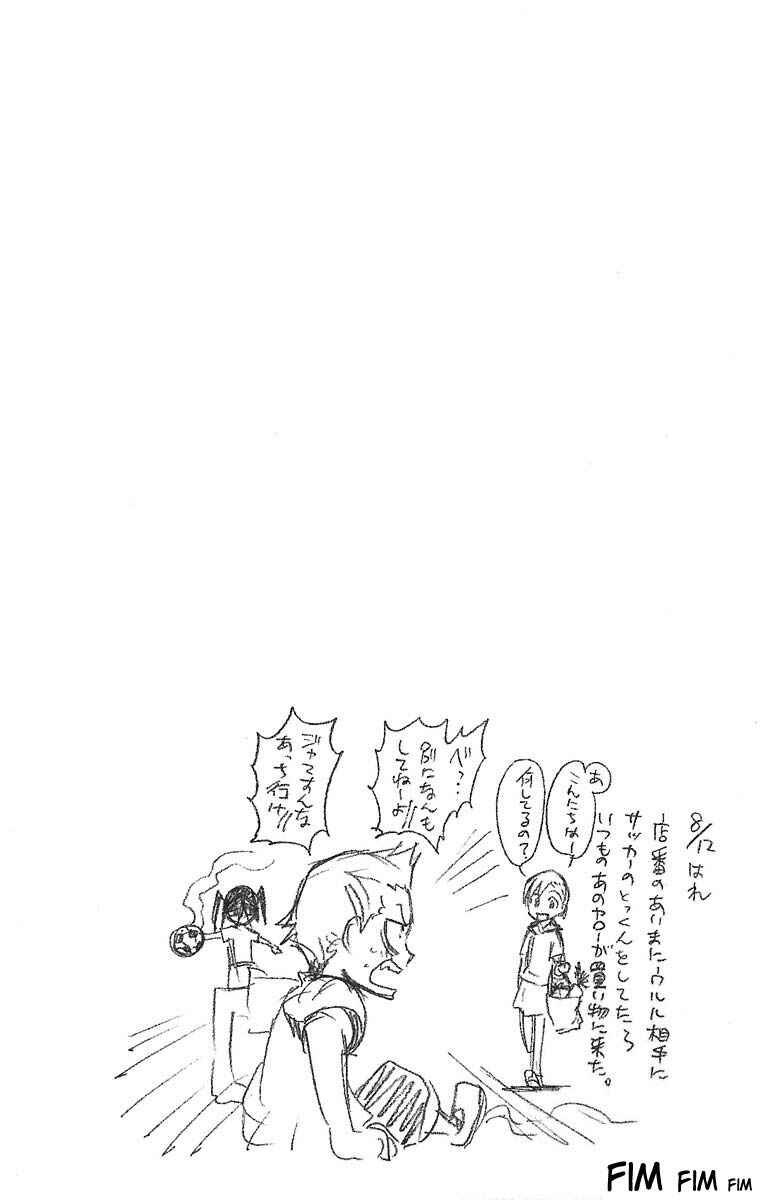 8/12 はれ
店番のあいまにウルル相手に
サッカーのとっくんをしてたら
いつものあのヤローが買い物に来た。
あ
こんにちはー
何してるの?
べ?…
別になんも
してねーよ!!
ジャマすんな
あっち行け!!
FIM FIM FIM